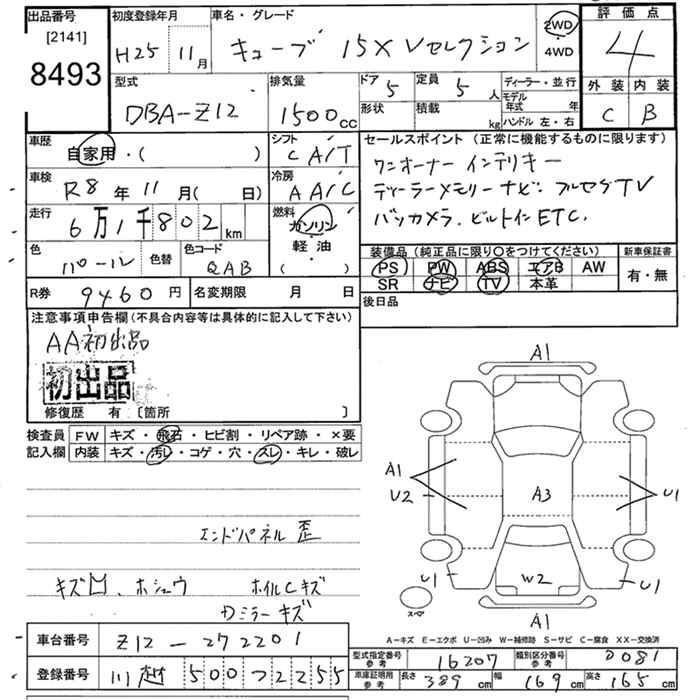 出品番号 初度登録年月 車名・グレード 評価点
[2141] H25 11月 キューブ 15X Vセレクション 2WD 4
8493 4WD
型式 排気量 ドア 5 定員 5人 ディーラー・並行 外装 内装
DBA-Z12 1500cc 形状 積載 kg モデル年式 年 C B
ハンドル 左・右
車歴 自家用・( ) シフト C A/T セールスポイント (正常に機能するものに限ります)
車検 R8年11月(日) 冷房 A A/C ワンオーナー インテリキー
走行 6万1千802km 燃料 ガソリン 軽油 ( ) ディーラーメモリーナビ. フルセグTV
バックカメラ. ビルトインETC.
色 パール 色替 色コード QAB
装備品 (純正品に限り〇をつけてください) 新車保証書
PS PW ABS エアB AW 有・無
SR ナビ TV 本革
R券 9460円 名変期限 月 日 後日品
注意事項申告欄(不具合内容等は具体的に記入して下さい)
AA初出品
初出品
修復歴 有 [箇所 ]
検査員 FW キズ・飛石・ヒビ割・リペア跡・×要
記入欄 内装 キズ・汚レ・コゲ・穴・スレ・キレ・破レ
A1
A1
U2 A3 U1
エンドパネル 歪
キズ凹. ホシュウ ホイルCキズ
Dミラーキズ
U1 W2 U1
スペア
A1
A-キズ E-エクボ U-凹み W-補修跡 S-サビ C-腐食 XX-交換済
車台番号 Z12-272201
登録番号 川越 500 つ 2255
型式指定番号 参考 16207 類別区分番号 参考 0081
車庫証明用 参考 長さ 389cm 幅 169cm 高さ 165cm